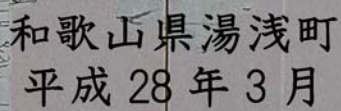 和歌山県湯浅町
平成28年3月